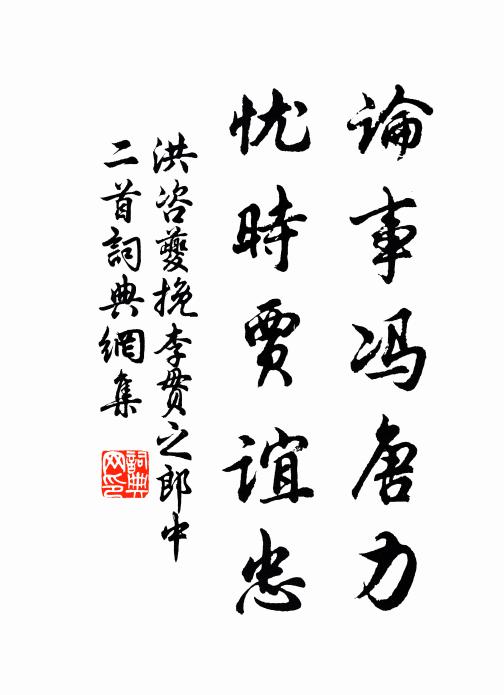 論事冯唐力
忧時賈誼忠
洪咨夔挽李贯之郎中
二首詞典網集
詞典网印